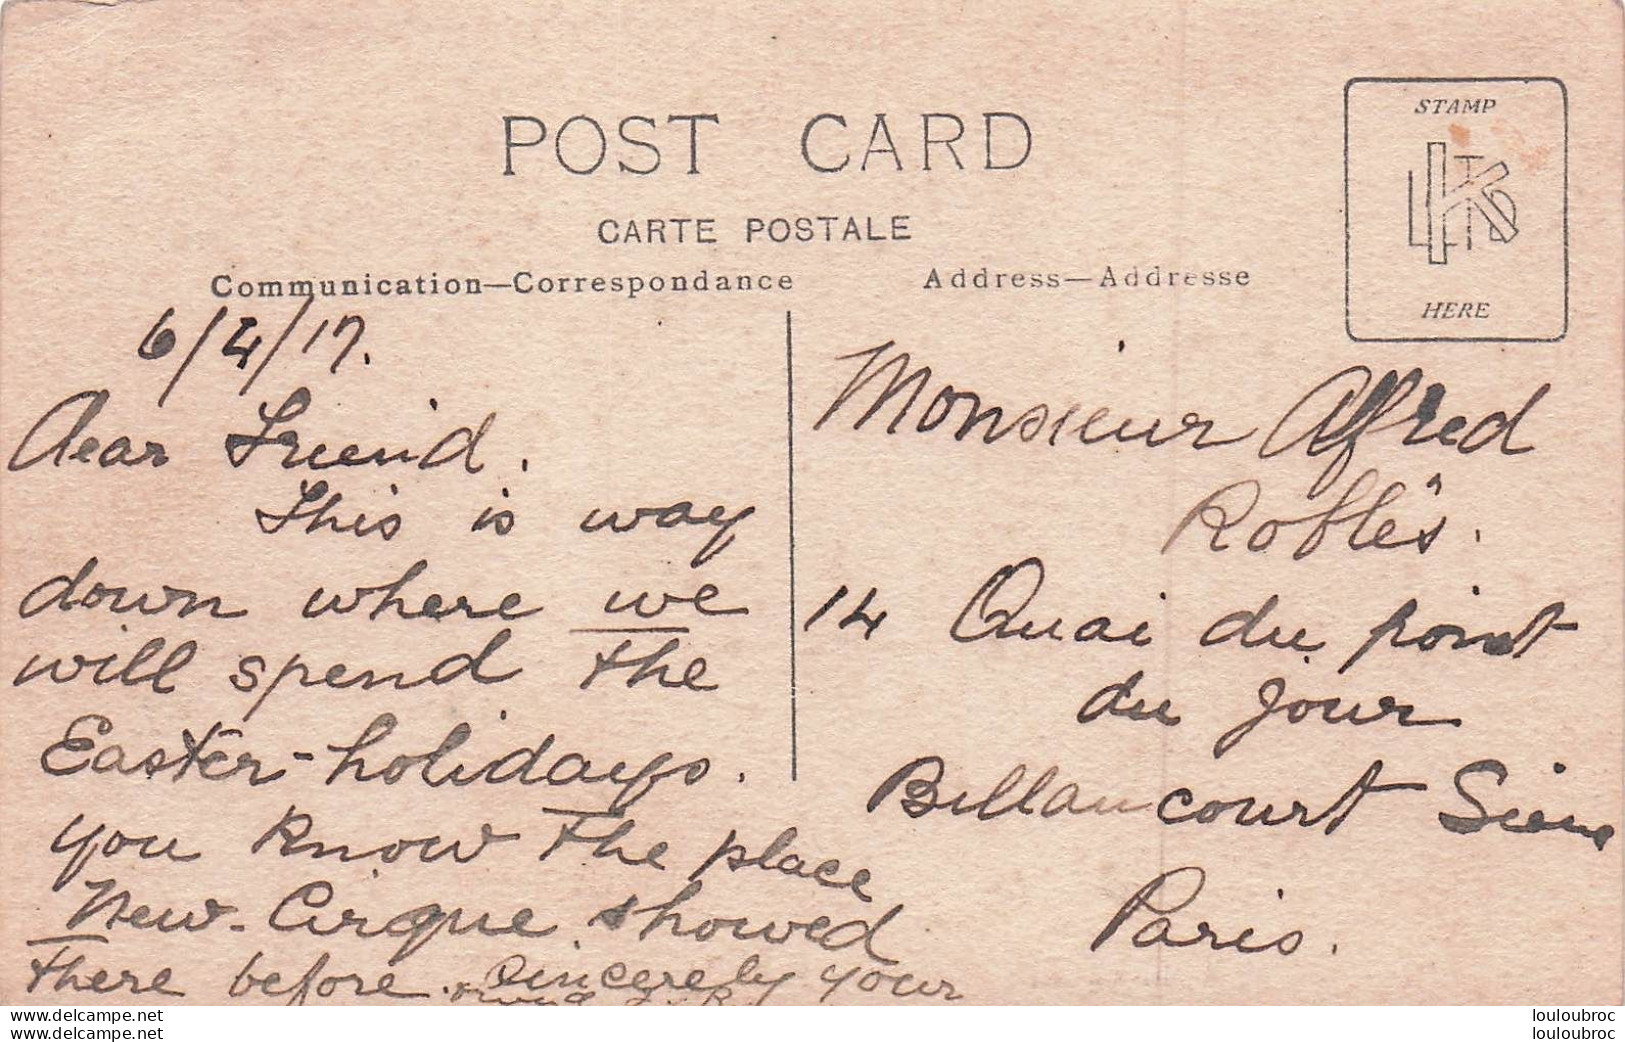 POST CARD
CARTE POSTALE
Communication—Correspondance
Address—Addresse
STAMP
HERE
6/4/17.
Dear Friend.
This is way
down where we
will spend the
Easter-holidays.
you know the place
New-Cirque showed
there before. Sincerely your
Monsieur Alfred
Roblès.
14 Quai du point
du jour
Billancourt Siene
Paris.
www.delcampe.net
www.delcampe.net
louloubroc
louloubroc